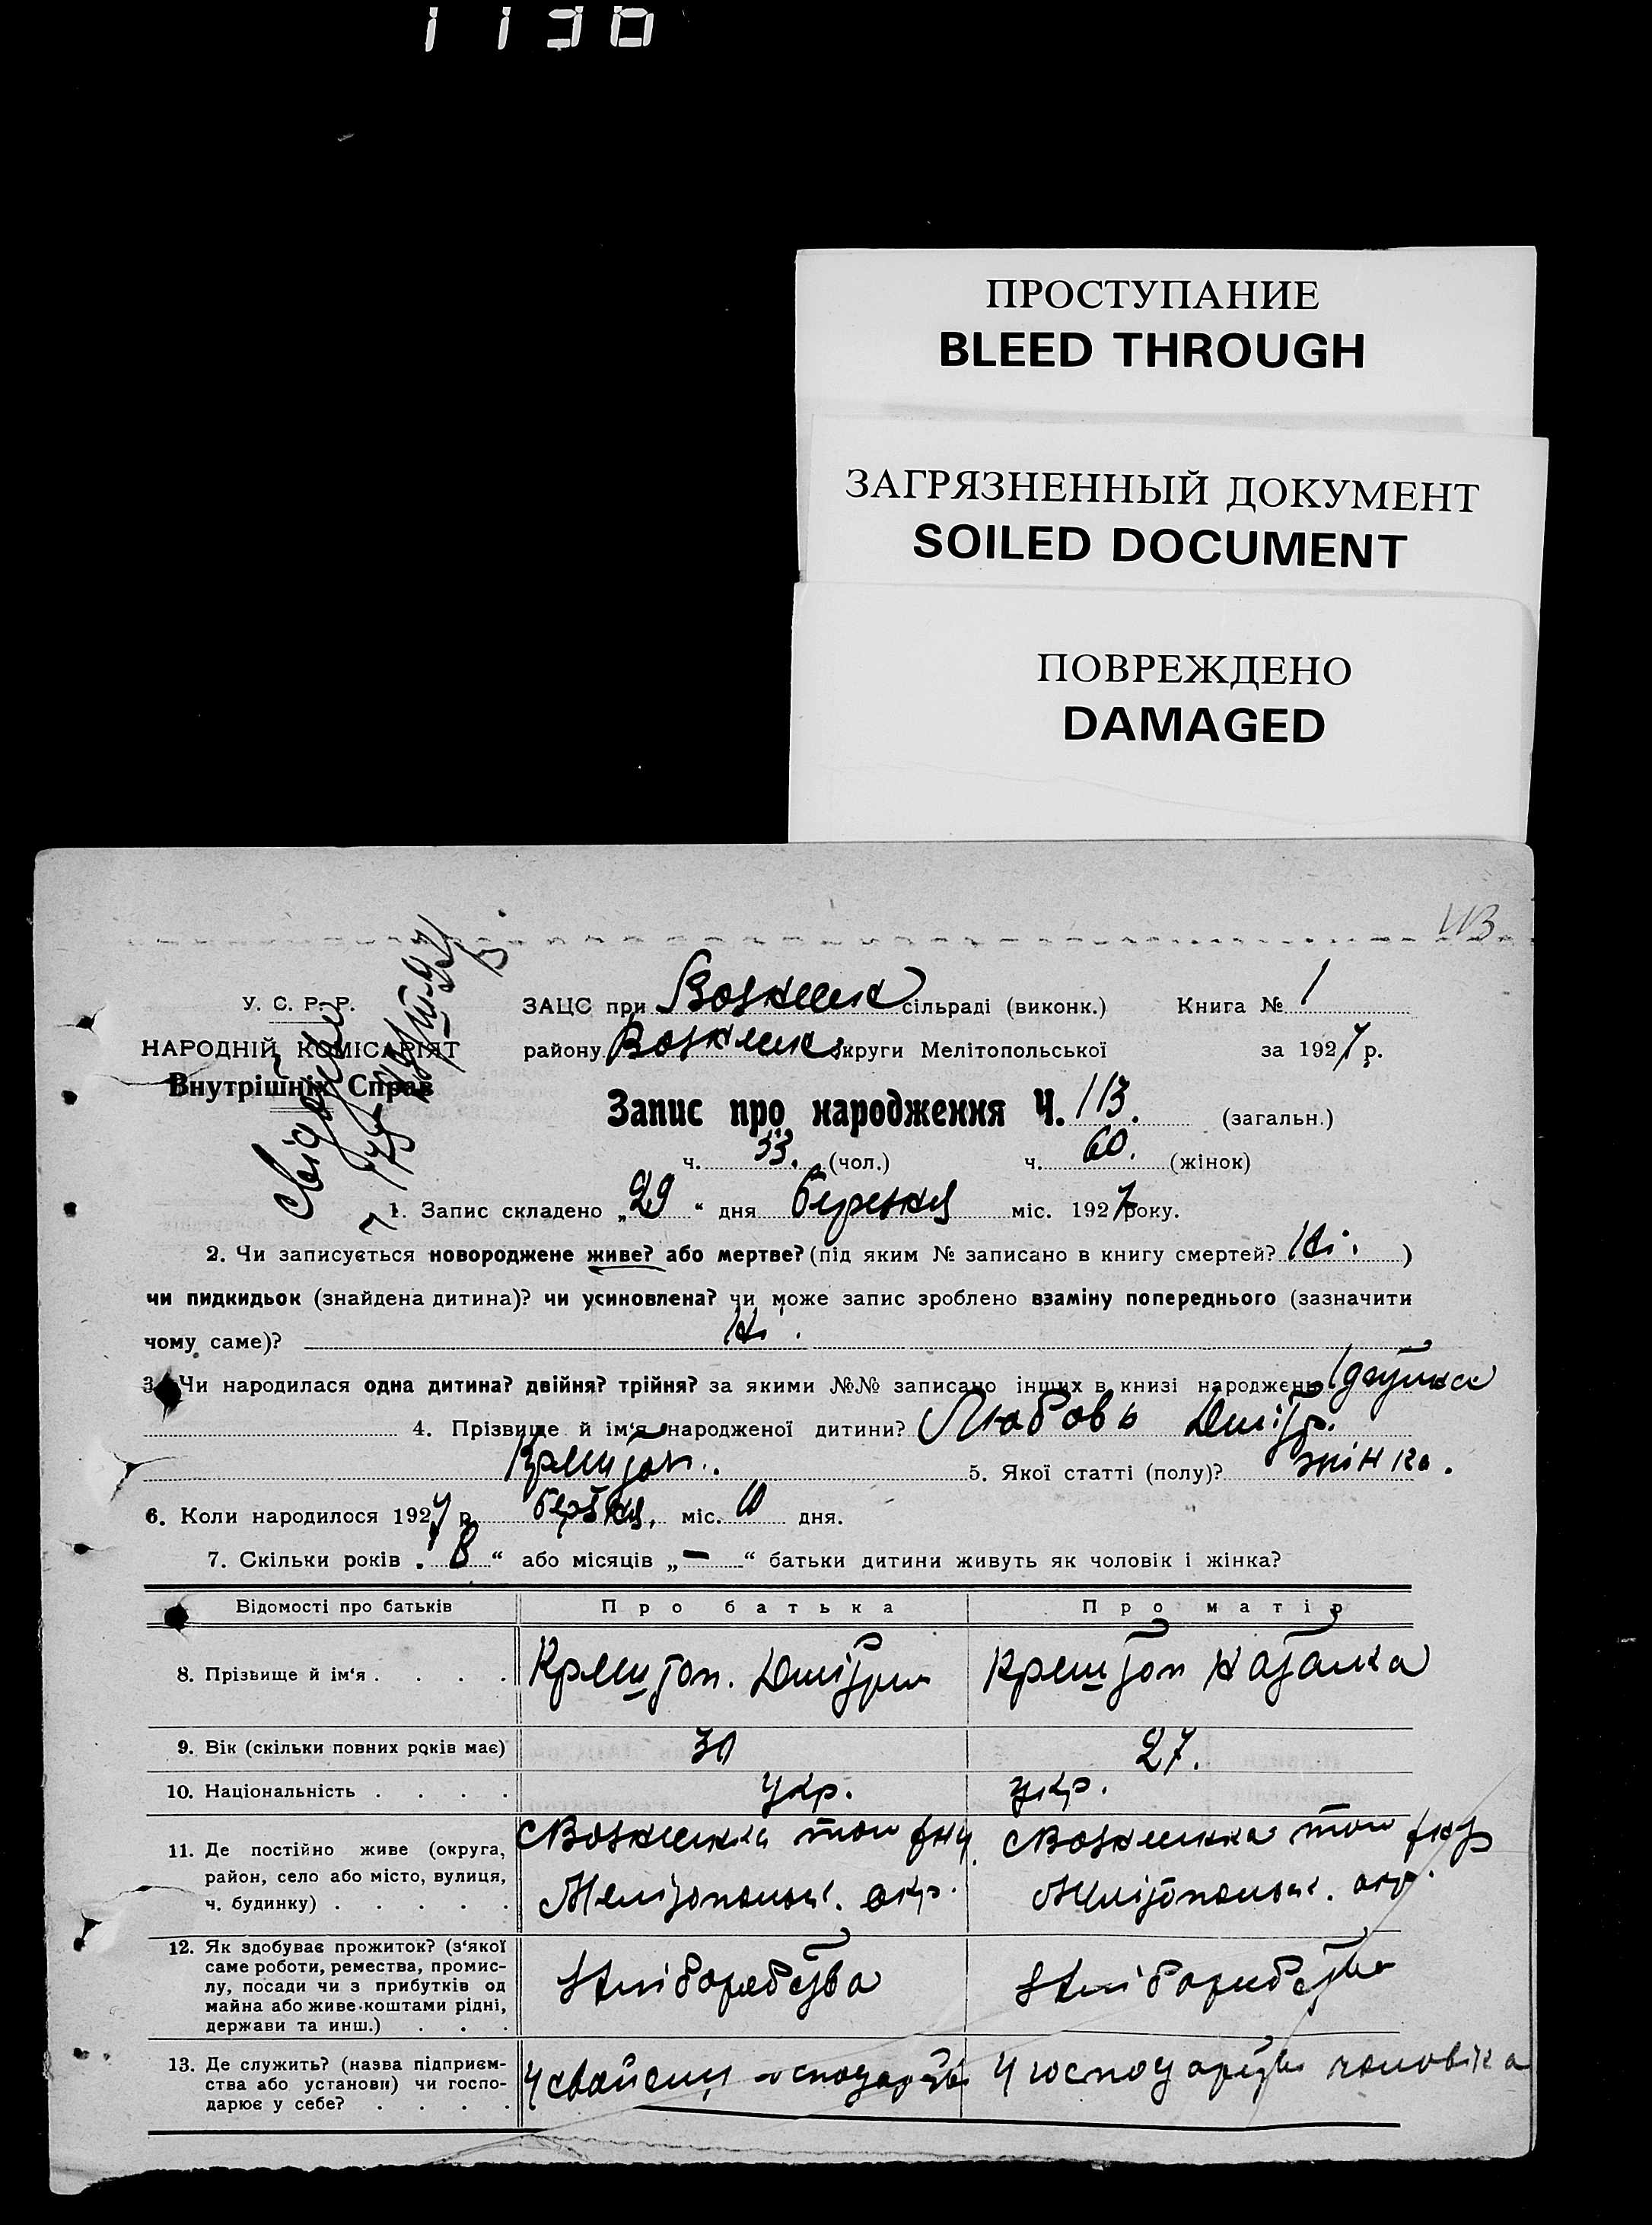 1136
ПРОСТУПАНИЕ
BLEED THROUGH
ЗАГРЯЗНЕННЫЙ ДОКУМЕНТ
SOILED DOCUMENT
ПОВРЕЖДЕНО
DAMAGED
113
У. С. Р. Р.
НАРОДНІЙ КОМІСАРІЯТ
Внутрішніх Справ
ЗАЦС при Вознесенс сільраді (виконк.) Книга № 1
району Вознесенс округи Мелітопольської за 1927 р.
Запис про народження Ч. 113. (загальн.)
ч. 53. (чол.) ч. 60. (жінок)
1. Запис складено „29“ дня березня міс. 1927 року.
2. Чи записується новороджене живе? або мертве? (під яким № записано в книгу смертей? Ні. )
чи пидкидьок (знайдена дитина)? чи усиновлена? чи може запис зроблено взаміну попереднього (зазначити
чому саме)? Ні.
3. Чи народилася одна дитина? двійня? трійня? за якими №№ записано інших в книзі народжень
4. Прізвище й ім'я народженої дитини? Любовь Дмітр.
5. Якої статті (полу)? жінка.
6. Коли народилося 1927 р. березня, міс. 10 дня.
7. Скільки років „8“ або місяців „—“ батьки дитини живуть як чоловік і жінка?
Відомості про батьків Про батька Про матір
8. Прізвище й ім'я . . . . Дмітрий Наталка
9. Вік (скільки повних років має) 30 27.
10. Національність . . . . укр. укр.
11. Де постійно живе (округа,
район, село або місто, вулиця,
ч. будинку) . . . . . Мелітопольс. окр. Мелітопольс. окр.
12. Як здобуває прожиток? (з'якої
саме роботи, ремества, промис-
лу, посади чи з прибутків од
майна або живе коштами рідні,
держави та инш.) . . . Хліборобства Хліборобства
13. Де служить? (назва підприєм-
ства або установи) чи госпо-
дарює у себе? . . . . У своєму господарстві У господарстві чоловіка